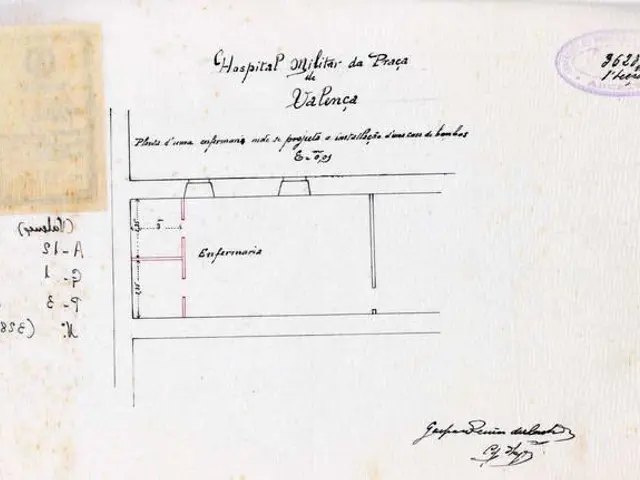 Hospital Militar da Praça
de
Valença
Planta d'uma enfermaria onde se projecta a installação d'uma casa de banhos
E = 0,01
Enfermaria
(Valença)
A-12
G-1
P-3
N.º (328
3628